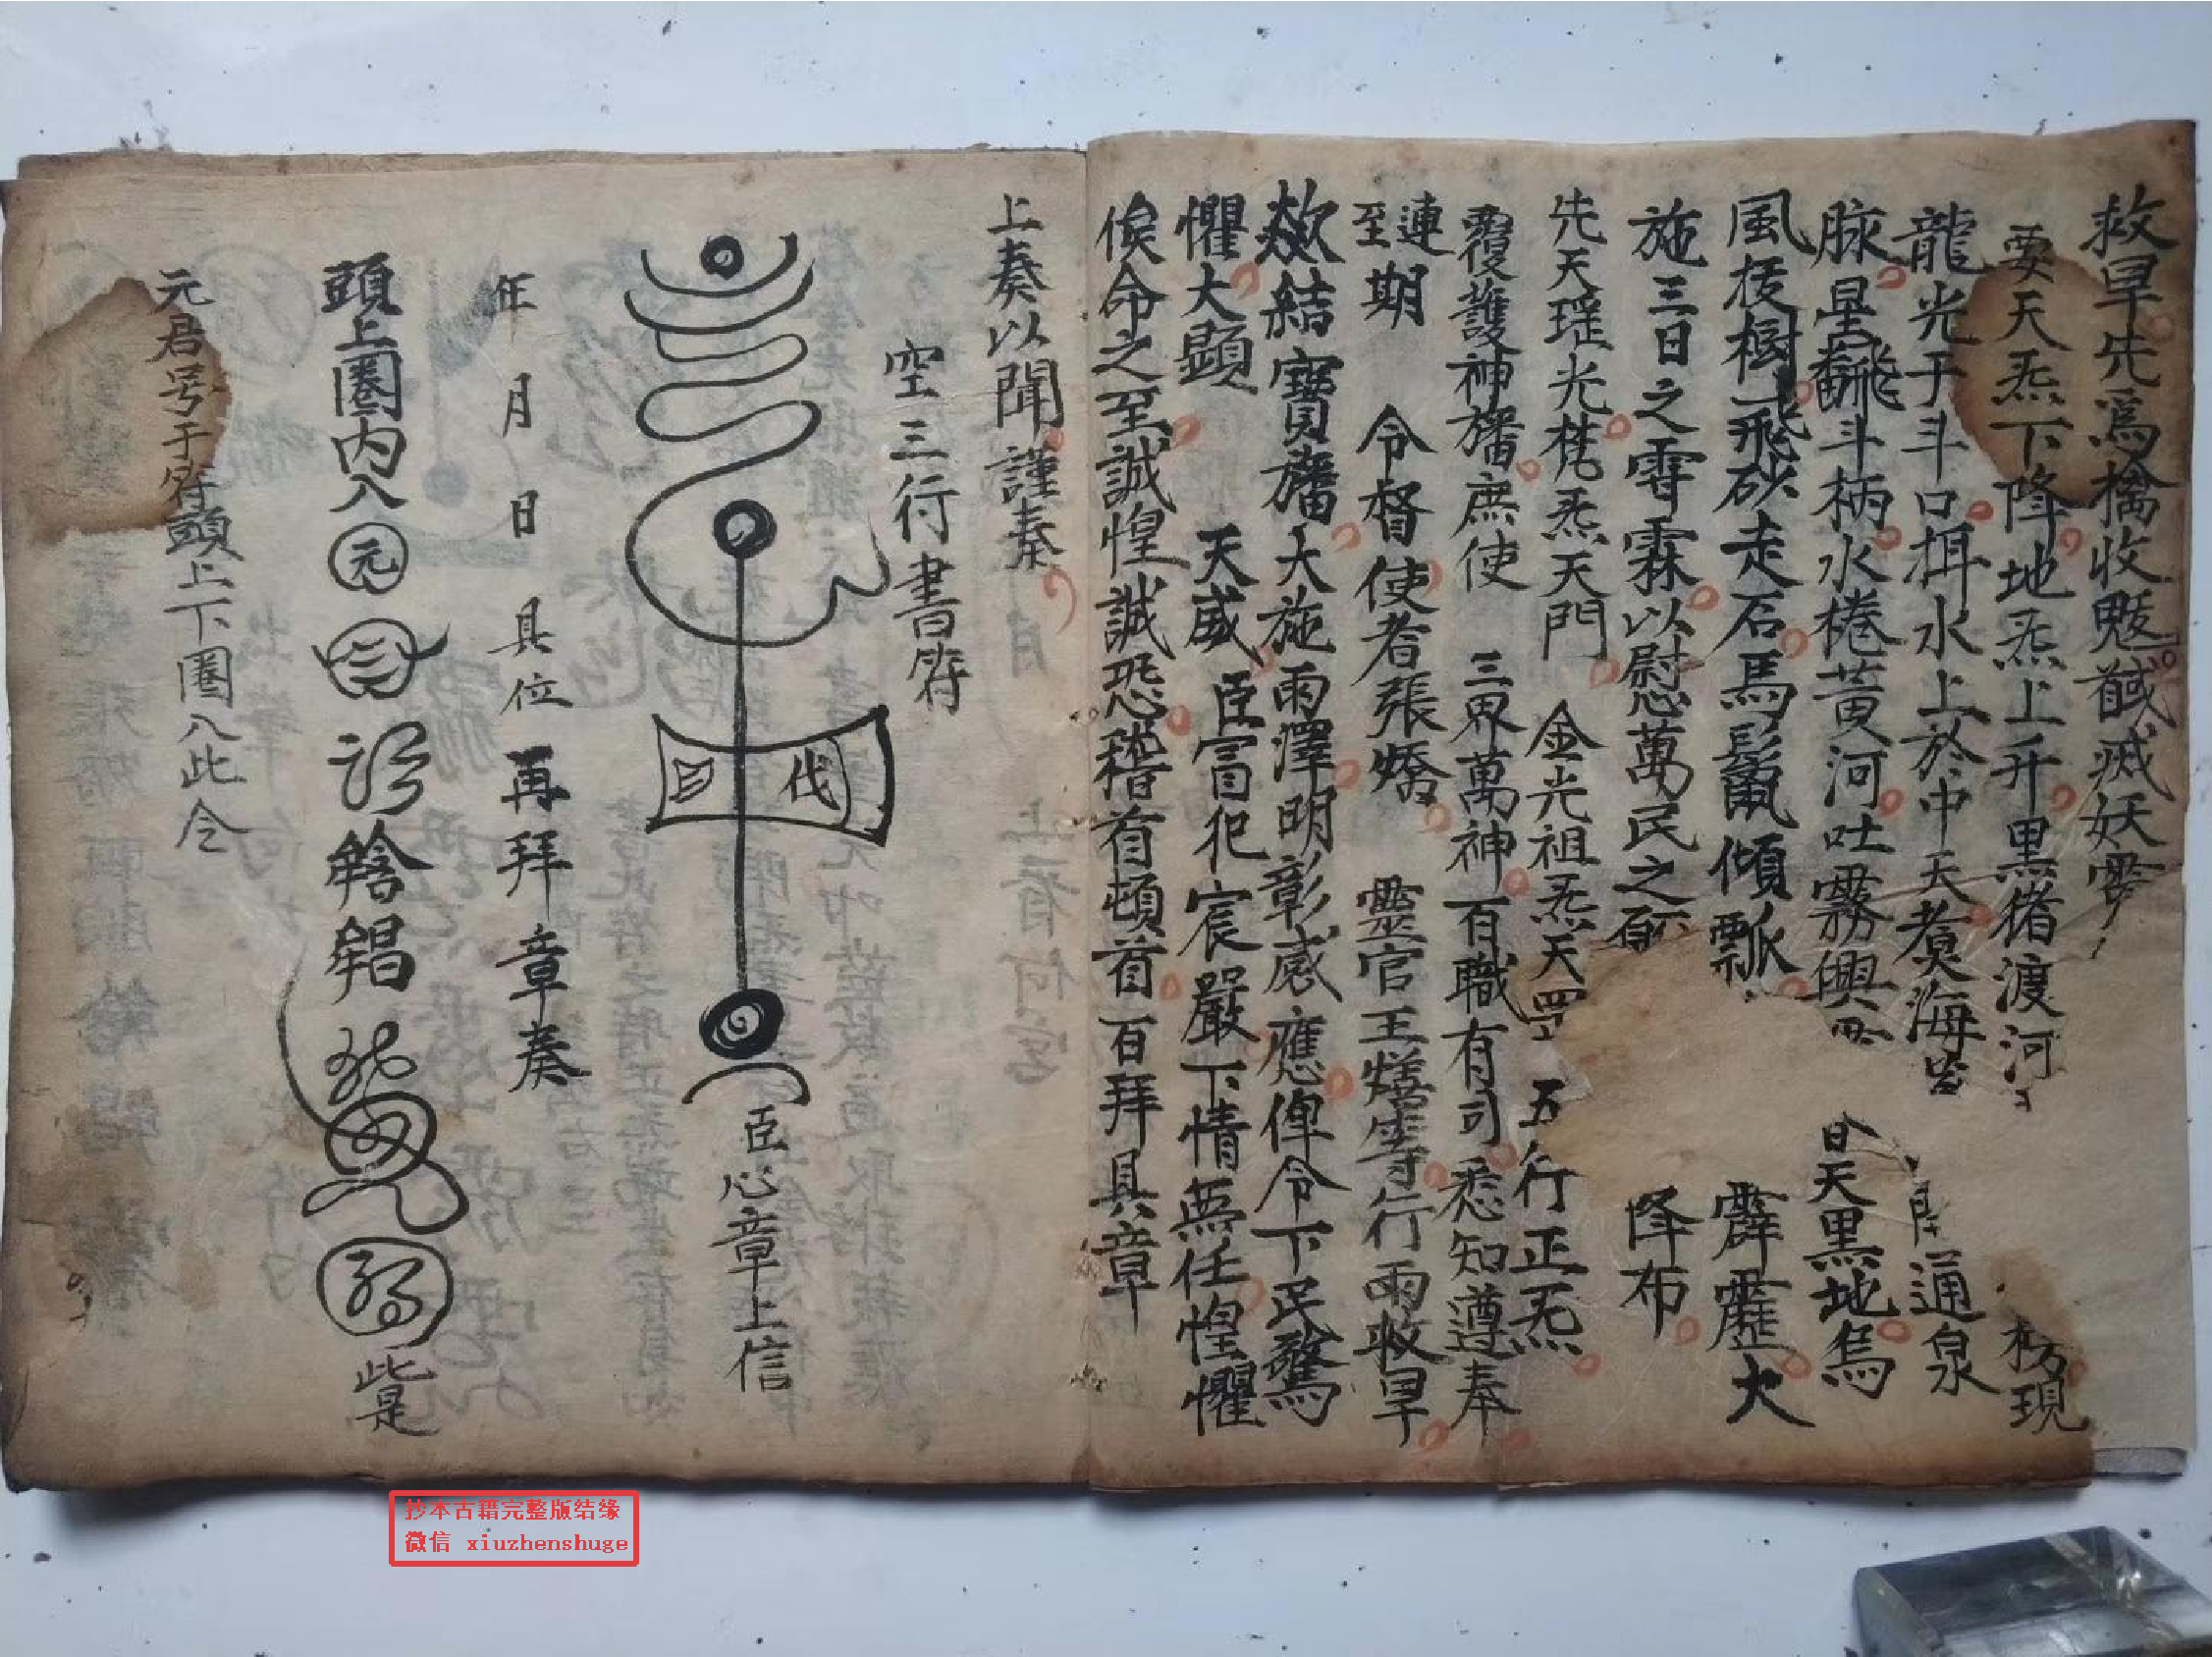 救旱先爲擒收魃馘滅妖
要天炁下降地炁上升黑猪渡河 現
龍光于斗口挹水上於中天煑海 通泉
脉星飜斗柄水捲黃河吐霧興 天黑地烏
風拔樹飛砂走石馬鬣傾瓢 霹靂大
施三日之霖以慰萬民之 降布
先天瑶光 炁天門 金光祖炁天罡 五行正炁
覆護神旛庶使 三界萬神百職有司悉知遵奉
連至期 令督使者張 靈官王 等行雨收旱
歘結寶旛大施雨澤明彰感應俾令下民驚
懼大顯 天威臣冒犯宸嚴下情無任惶懼
俟命之至誠惶誠恐稽首頓首百拜具章
上奏以聞謹奏
空三行書符
伐
臣心章上信
年 月 日 具位 再拜章奏
頭上圈内入元 此是
元君号于符頭上下圈入此令
抄本古籍完整版结缘
微信 xiuzhenshuge